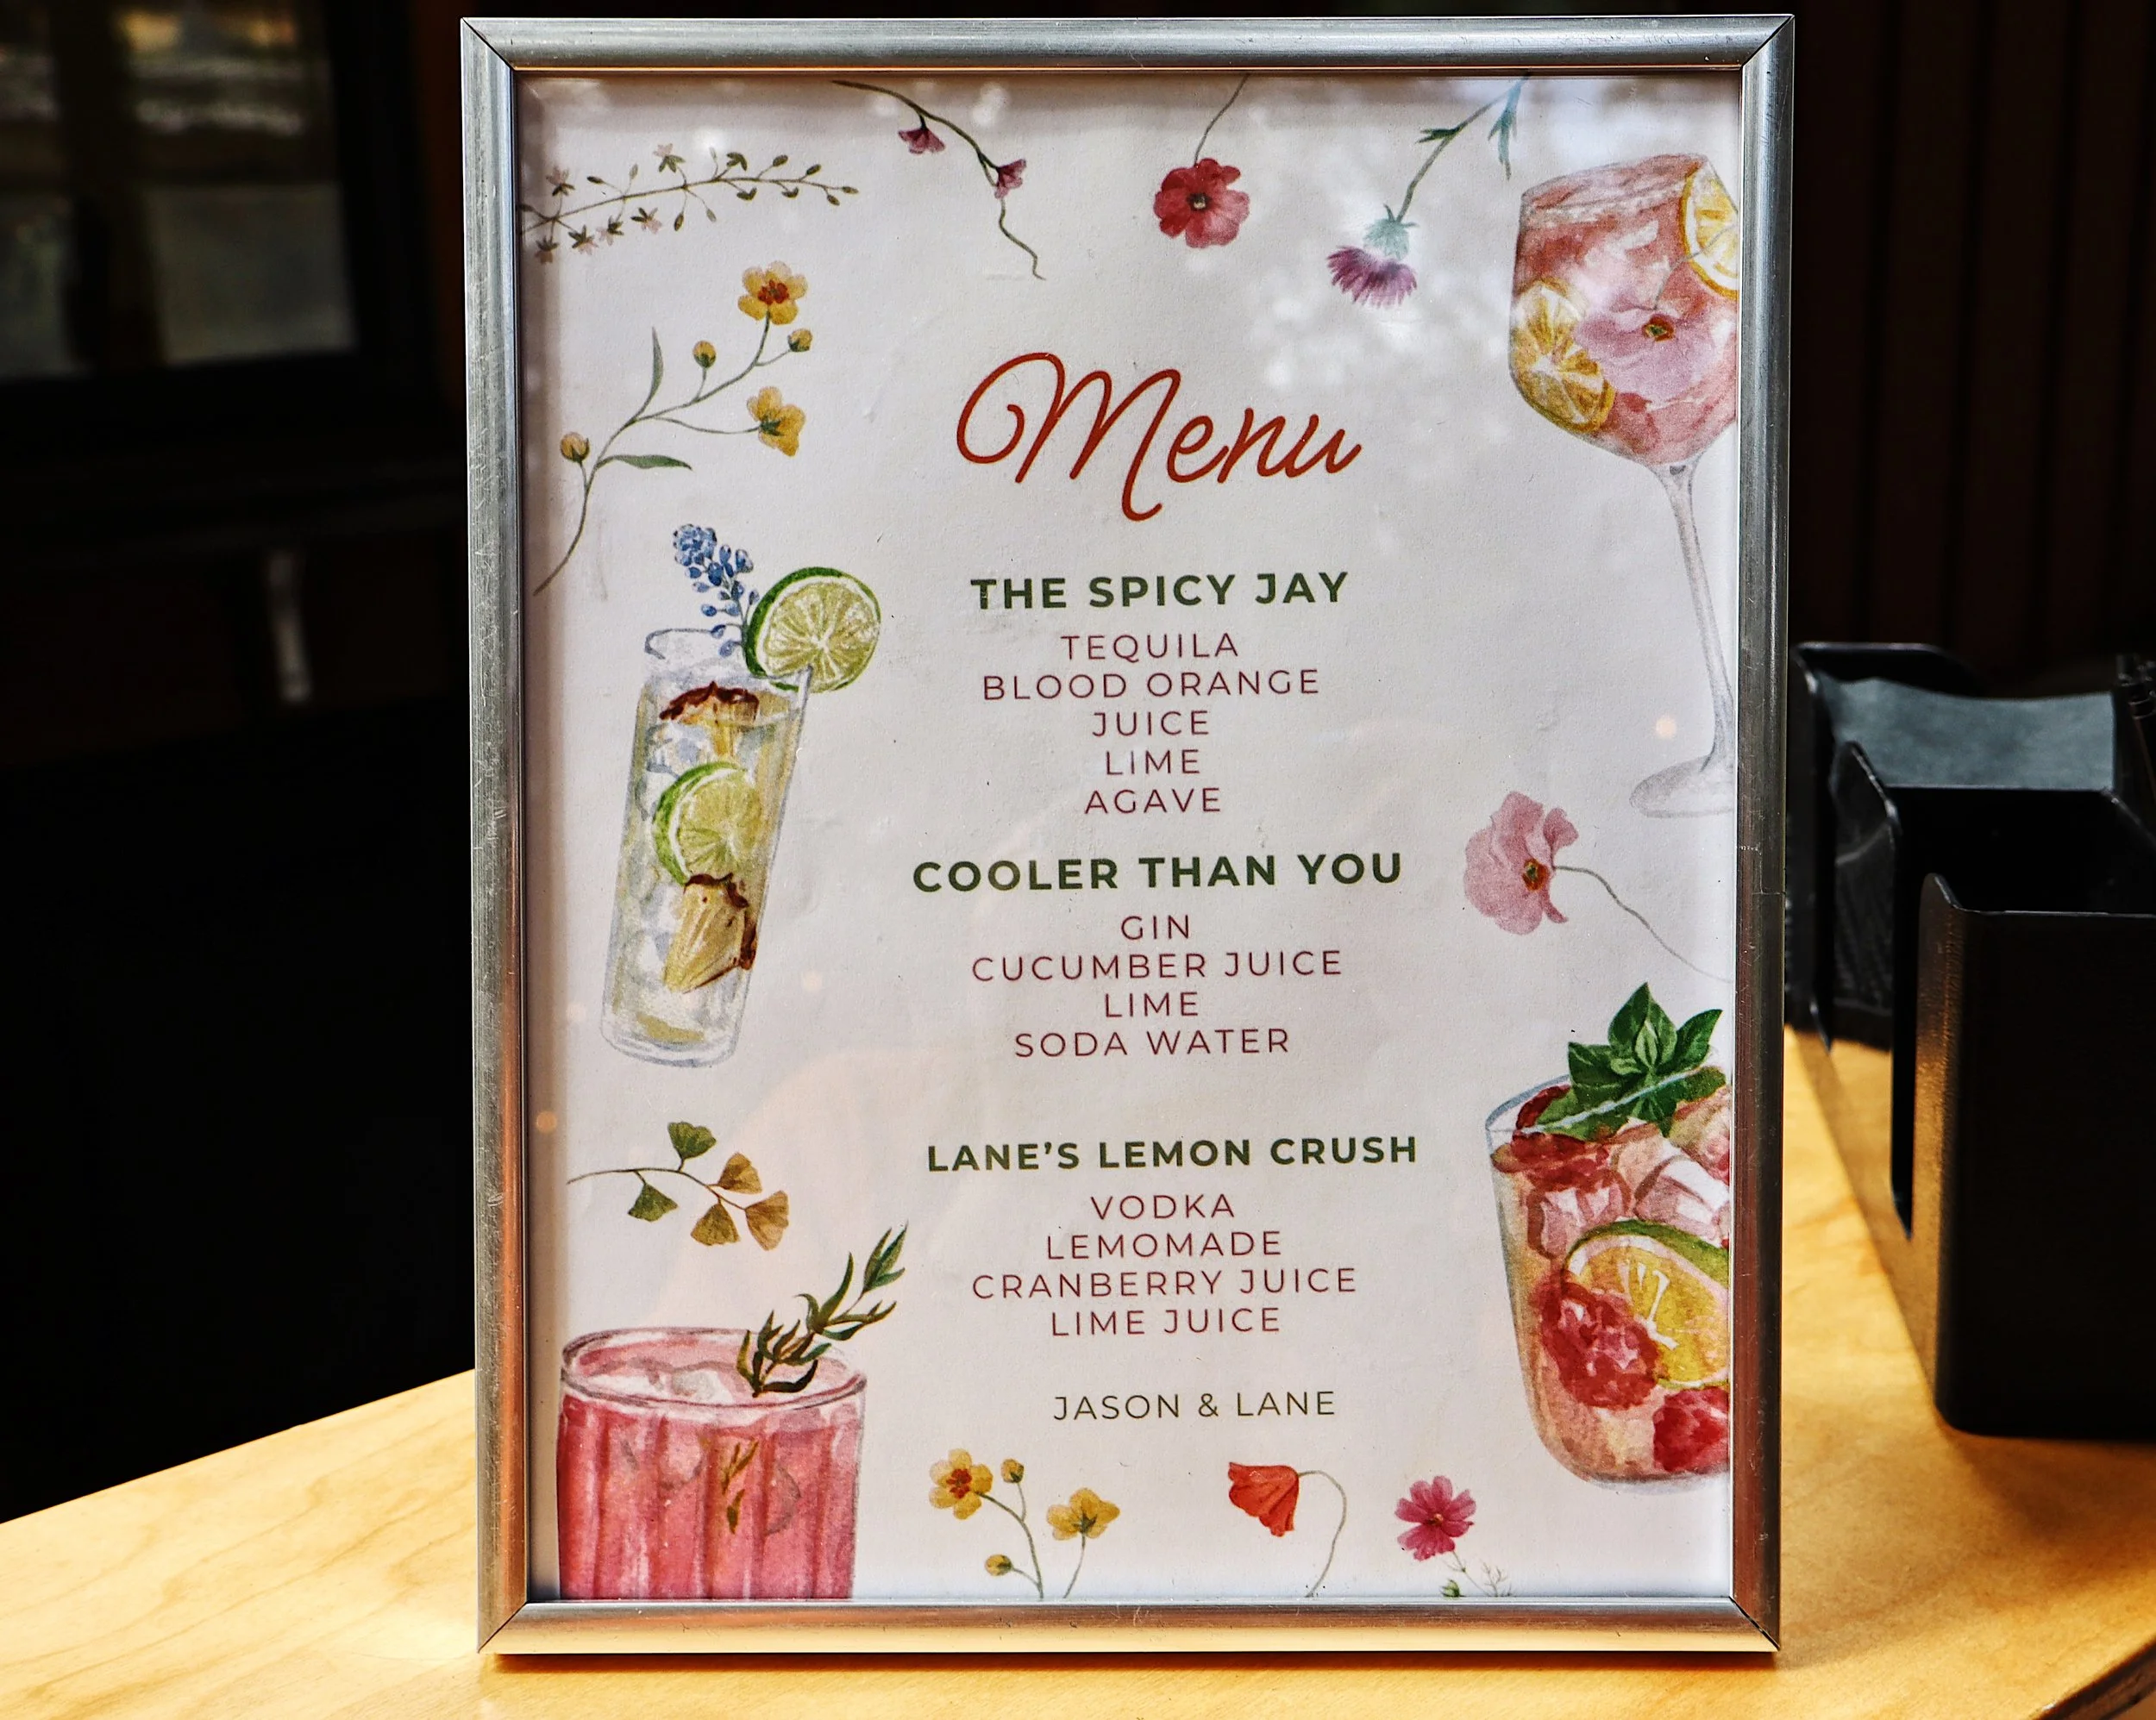 Menu
THE SPICY JAY
TEQUILA
BLOOD ORANGE
JUICE
LIME
AGAVE
COOLER THAN YOU
GIN
CUCUMBER JUICE
LIME
SODA WATER
LANE'S LEMON CRUSH
VODKA
LEMOMADE
CRANBERRY JUICE
LIME JUICE
JASON & LANE